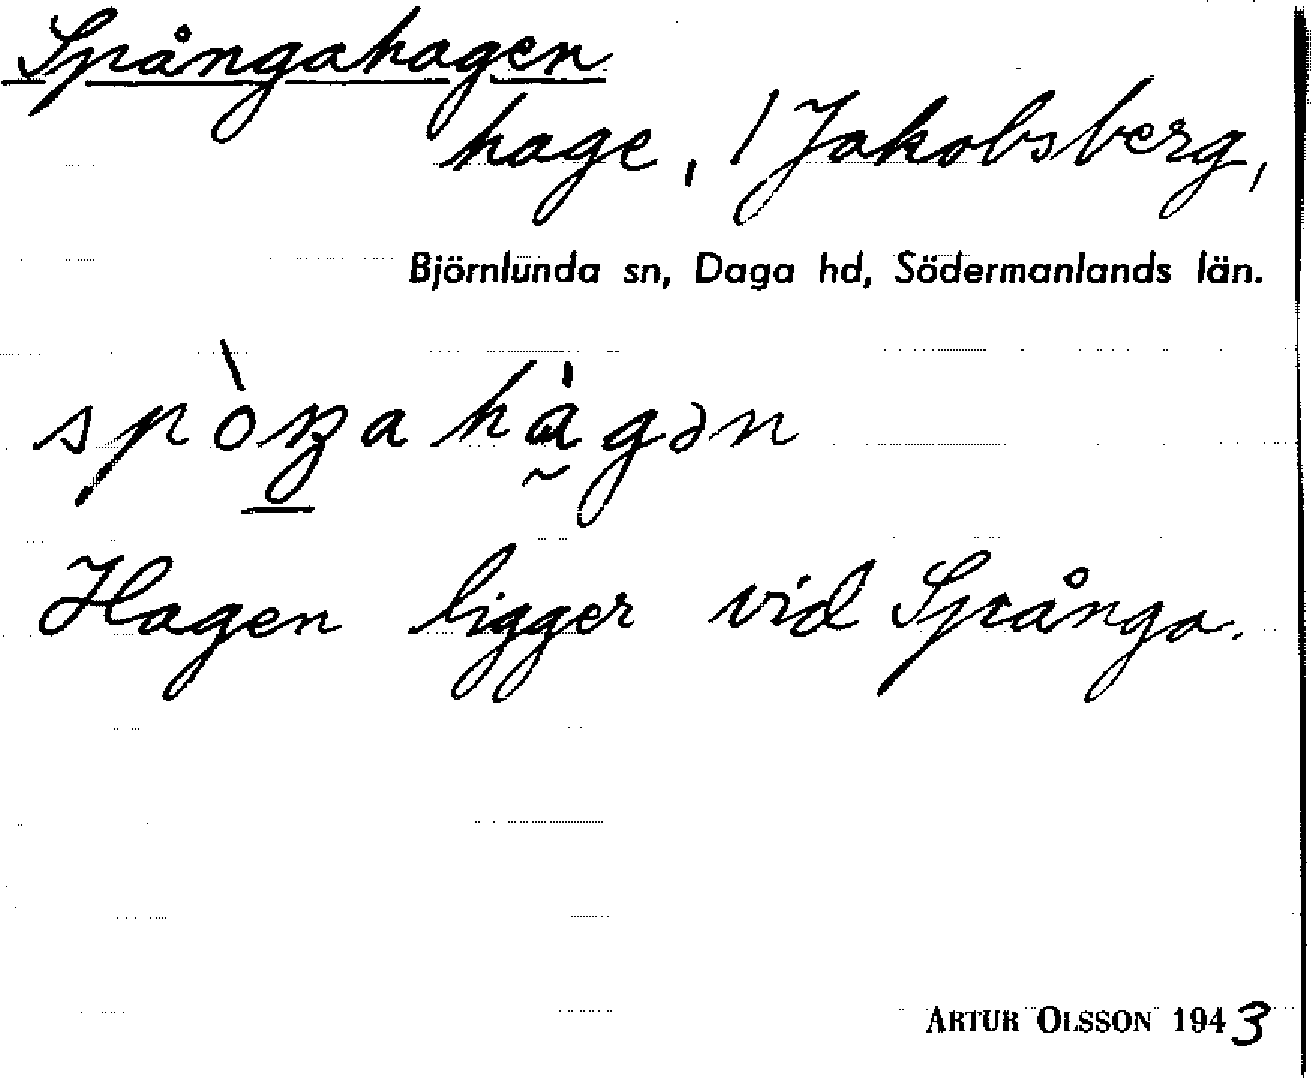 Spångahagen
hage, / Jakobsberg,
Björnlunda sn, Daga hd, Södermanlands län.
spòŋahàgən
Hagen ligger vid Spånga.
ARTUR OLSSON 1943